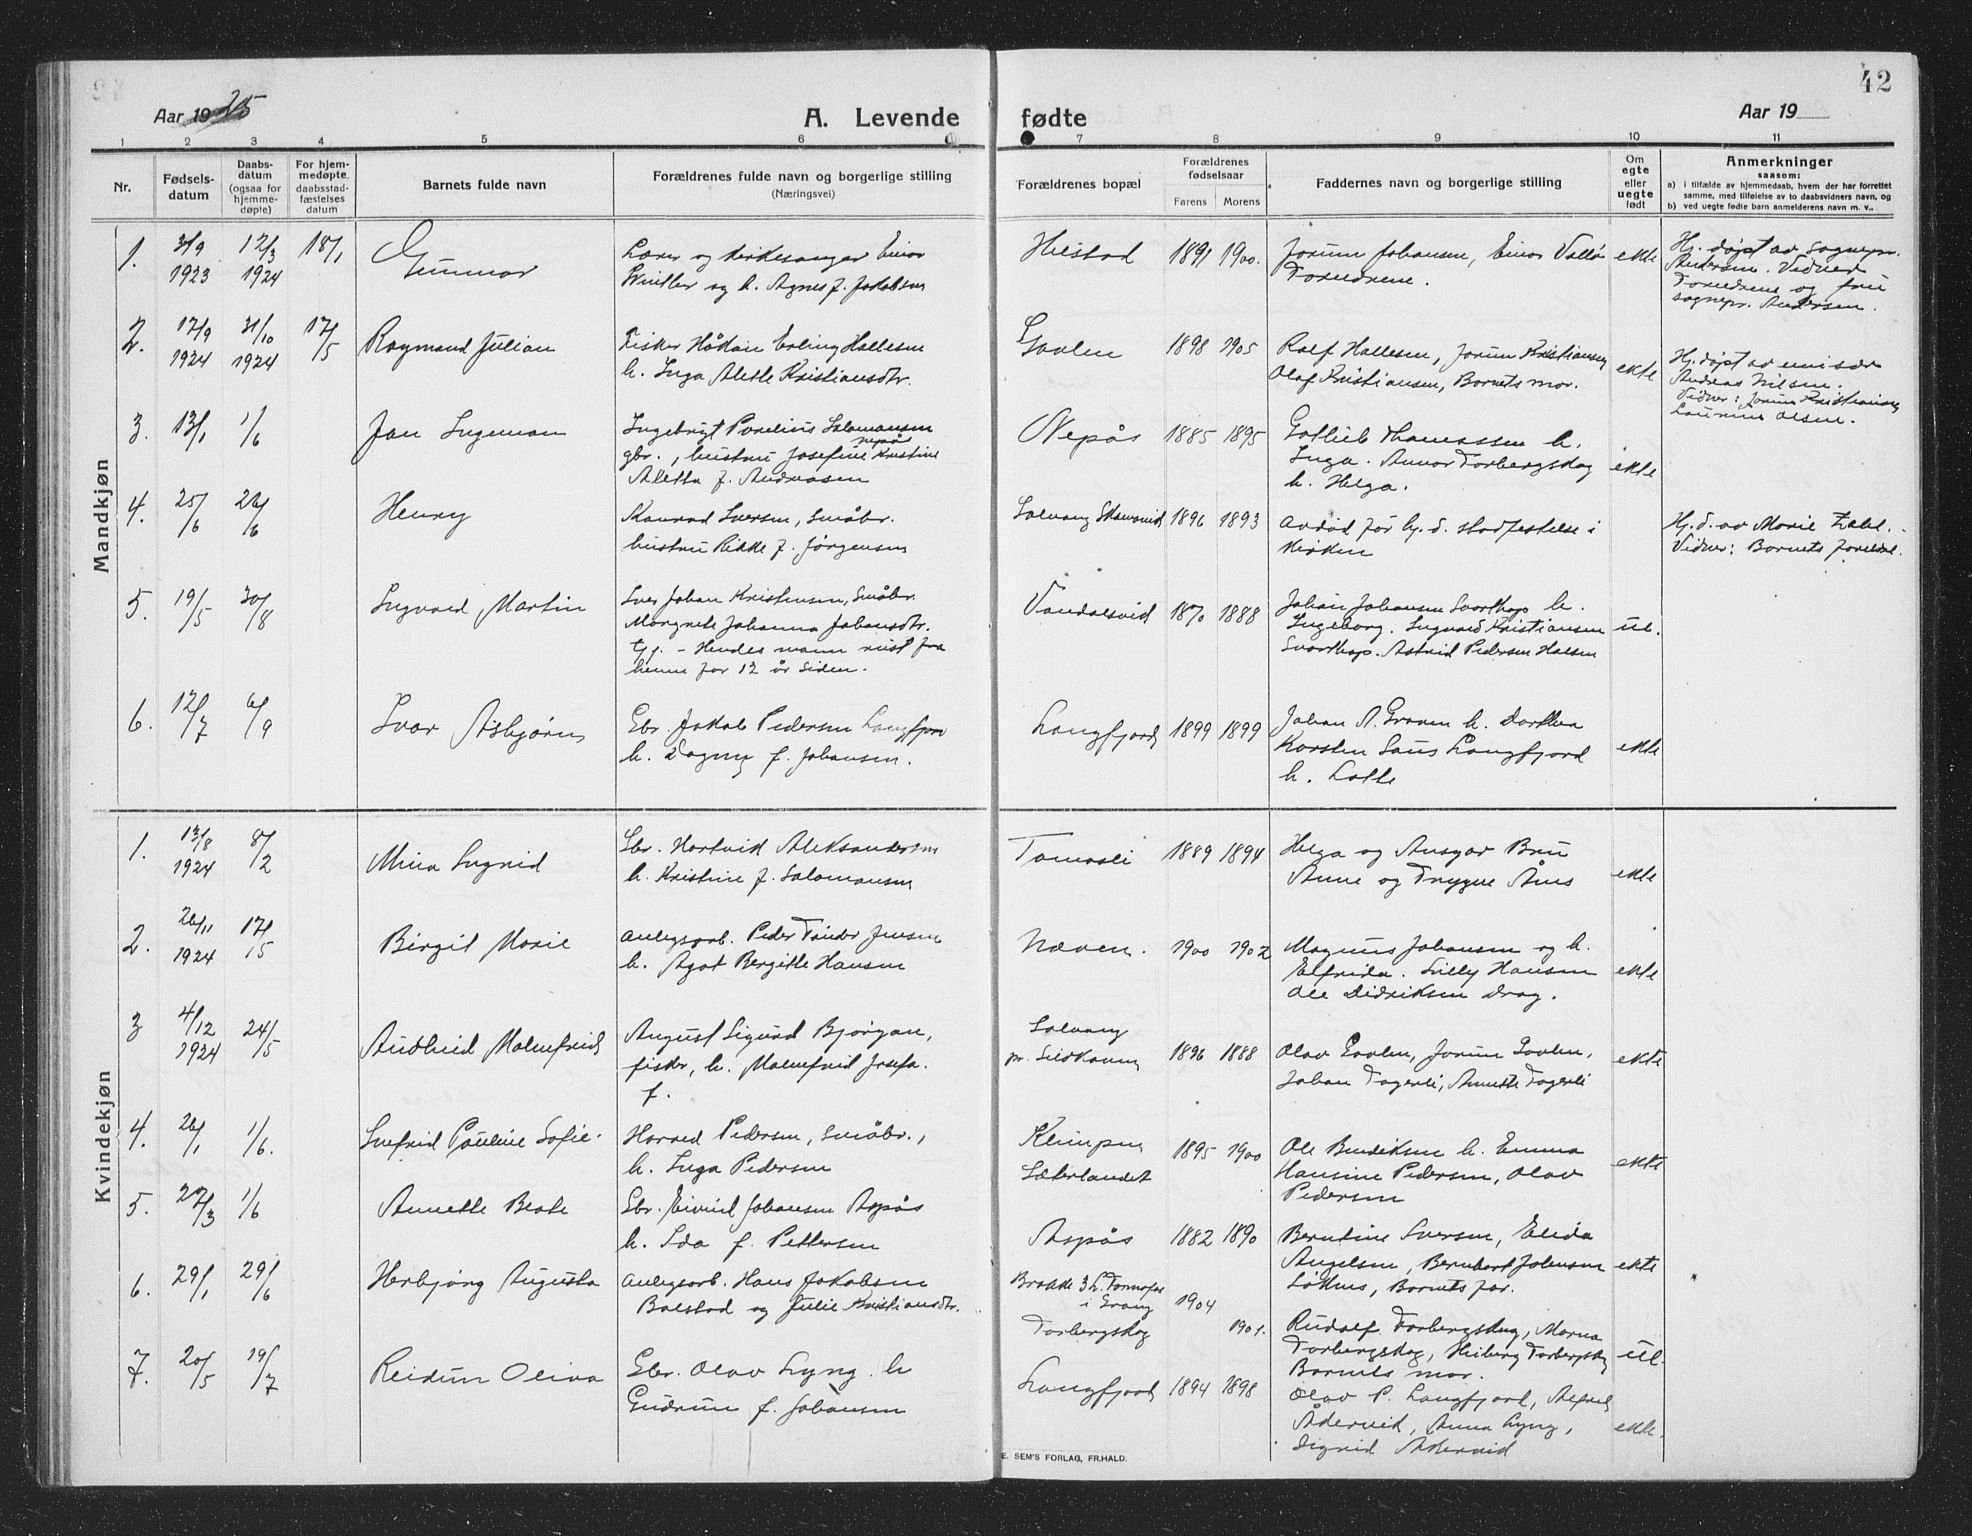 42
Aar 1925
A. Levende
fødte
Aar 19
1 2 3 4 5 6 7 8 9 10 11
Nr.
Fødsels-
datum
Daabs-
datum
(ogsaa for
hjemme-
døpte)
For hjem-
medøpte,
daabsstad-
fæstelses
datum
Barnets fulde navn
Forældrenes fulde navn og borgerlige stilling
(Næringsvei)
Forældrenes bopæl
Forældrenes
fødselsaar
Farens Morens
Faddernes navn og borgerlige stilling
Om
egte
eller
uegte
født
Anmerkninger
saasom:
a) i tilfælde av hjemmedaab, hvem der har forrettet
samme, med tilføielse av to daabsvidners navn, og
b) ved uegte fødte barn anmelderens navn m. v..
Mandkjøn
1. 31/9 1923 12/3 1924 18/1 Gunnar
Lærer og kirkesanger Einar
h. Agnes f. Jakobsen
1891 1900.
Jorunn Johansen, Einar
Foreldrene.
ekte
Hj. døpt av sognepr.
Andersen. Vidner
Foreldrene og fru
sognepr. Andersen.
2. 17/9 1924 31/10 1924 17/5 Raymand Julian
Fisker Håkon Erling Hallesen
h. Inga Alette Kristiansdtr.
Govlen 1898 1905
Rolf Hallesen, Jorun Kristiansen
Olaf Kristiansen, Barnets mor.
ekte
Hj. døpt av emisær
Andreas Nilsen.
Vidner: Jorun Kristiansen
Laurine Olsen.
3. 13/1 1/6 Jan Ingeman
Ingebrigt Parelius Salamonsen
gbr., hustru Josefine Kristine
Aletta f. Andreasen
Nepås 1885 1895
Gotlieb Thomassen h.
Inga. Annar Torbergskog
h. Helga.
ekte
4. 25/6 26/6 Henry
Konrad Iversen, Småbr.
hustru Rikke f. Jørgensen
1896 1893
Avdød før hj. d. stadfestelse i
kirken
Hj. d. av Marie
Vidner: Barnets foreldre.
5. 19/5 30/8 Ingvald Martin
Iver Johan Kristensen, Småbr.
Margrete Johanna Johansdtr.
Hendes mann reist fra
henne for 12 år siden.
Våndalsvid 1870 1888
Johan Johansen Svarthop h.
Ingeborg. Ingvald Kristiansen
Svarthop. Astrid Pedersen Halsen
ue.
6. 12/7 6/9 Ivar Asbjørn
Gbr. Jakob Pedersen Langfjord
h. Dagny f. Johansen.
Langfjord 1899 1899
Johan A. Graven h. Dorthea
Karsten Saus Langfjord
h. Lotte
ekte
Kvindekjøn
1. 13/8 1924 8/2 Mina Ingrid
Gbr. Hartvik Aleksandersen
h. Kristine f. Salamonsen
Tomasli 1889 1894
Helga og Ansgar Bru
Anne og Trygve Åms
ekte
2. 26/11 1924 17/5 Birgit Marie
Anlegsarb. Peder Tander Jensen
h. Agot Bergitte Hansen
Næven. 1900 1902
Magnus Johansen og h.
Elfrida. Lilly Hansen
Ole Didriksen Drag.
ekte
3 4/12 1924 24/5 Audhild Malmfrid
August Sigurd Bjørgan,
fisker, h. Malmfrid Josefa.
f.
Solvang
pr. Sildhavn 1896 1888
Olav Govlen, Jorun Govlen,
Johan Fagerli, Annette Fagerli
ekte
4. 26/1 1/6. Snefrid Pauline Sofie.
Harald Pedersen, Småbr.,
h. Inga Pedersen
Klumpen
Sæterlandet 1895 1900
Ole Bendiksen h. Emma
Hansine Pedersen, Olav
Pedersen
ekte
5. 27/3 1/6 Annette Beate
Gbr. Eivind Johansen Aspås
h. Ida f. Pettersen
Aspås 1882 1890
Berntine Iversen, Elida
Angelsen, Bernhart Johansen
Barnets far.
ekte
6. 29/1 29/6 Herbjørg Augusta
Anlegsarb. Hans Jakobsen
Balstad og Julie Kristiansdtr.
Brakke 3
i Grong 1904
Torbergskog 1901.
Rudolf Torbergskog, Marna
Torbergskog, Heiberg Torbergskog
Barnets mor.
ue.
7. 20/5 19/7 Reidun Oliva
Gbr. Olav Lyng h
Gudrun f. Johansen
Langfjord 1894 1898
Olav P. Langfjord, Alfred
Ådervid, Anna Lyng,
Signid Adervid
ekte.
E. SEM'S FORLAG, FR.HALD.